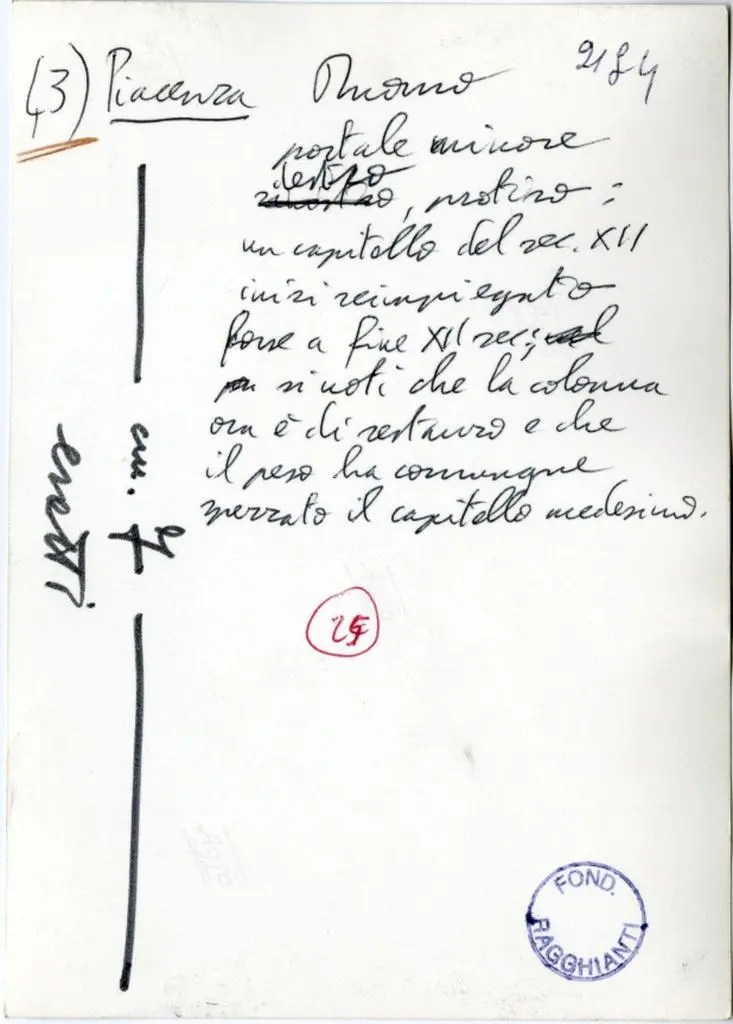 (43) Piacenza Duomo
portale minore
destro
sinistro, protiro:
un capitello del sec. XII
inizi reimpiegato
forse a fine XII sec;
si noti che la colonna
ora è di restauro e che
il peso ha comunque
spezzato il capitello medesimo.
cm. 9
FOND.
RAGGHIANTI